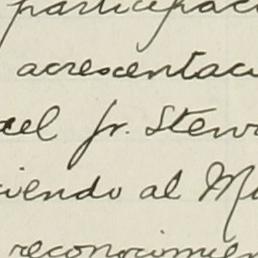 participac
acrescentac
el Sr. Stew
iendo al M
reconocimien